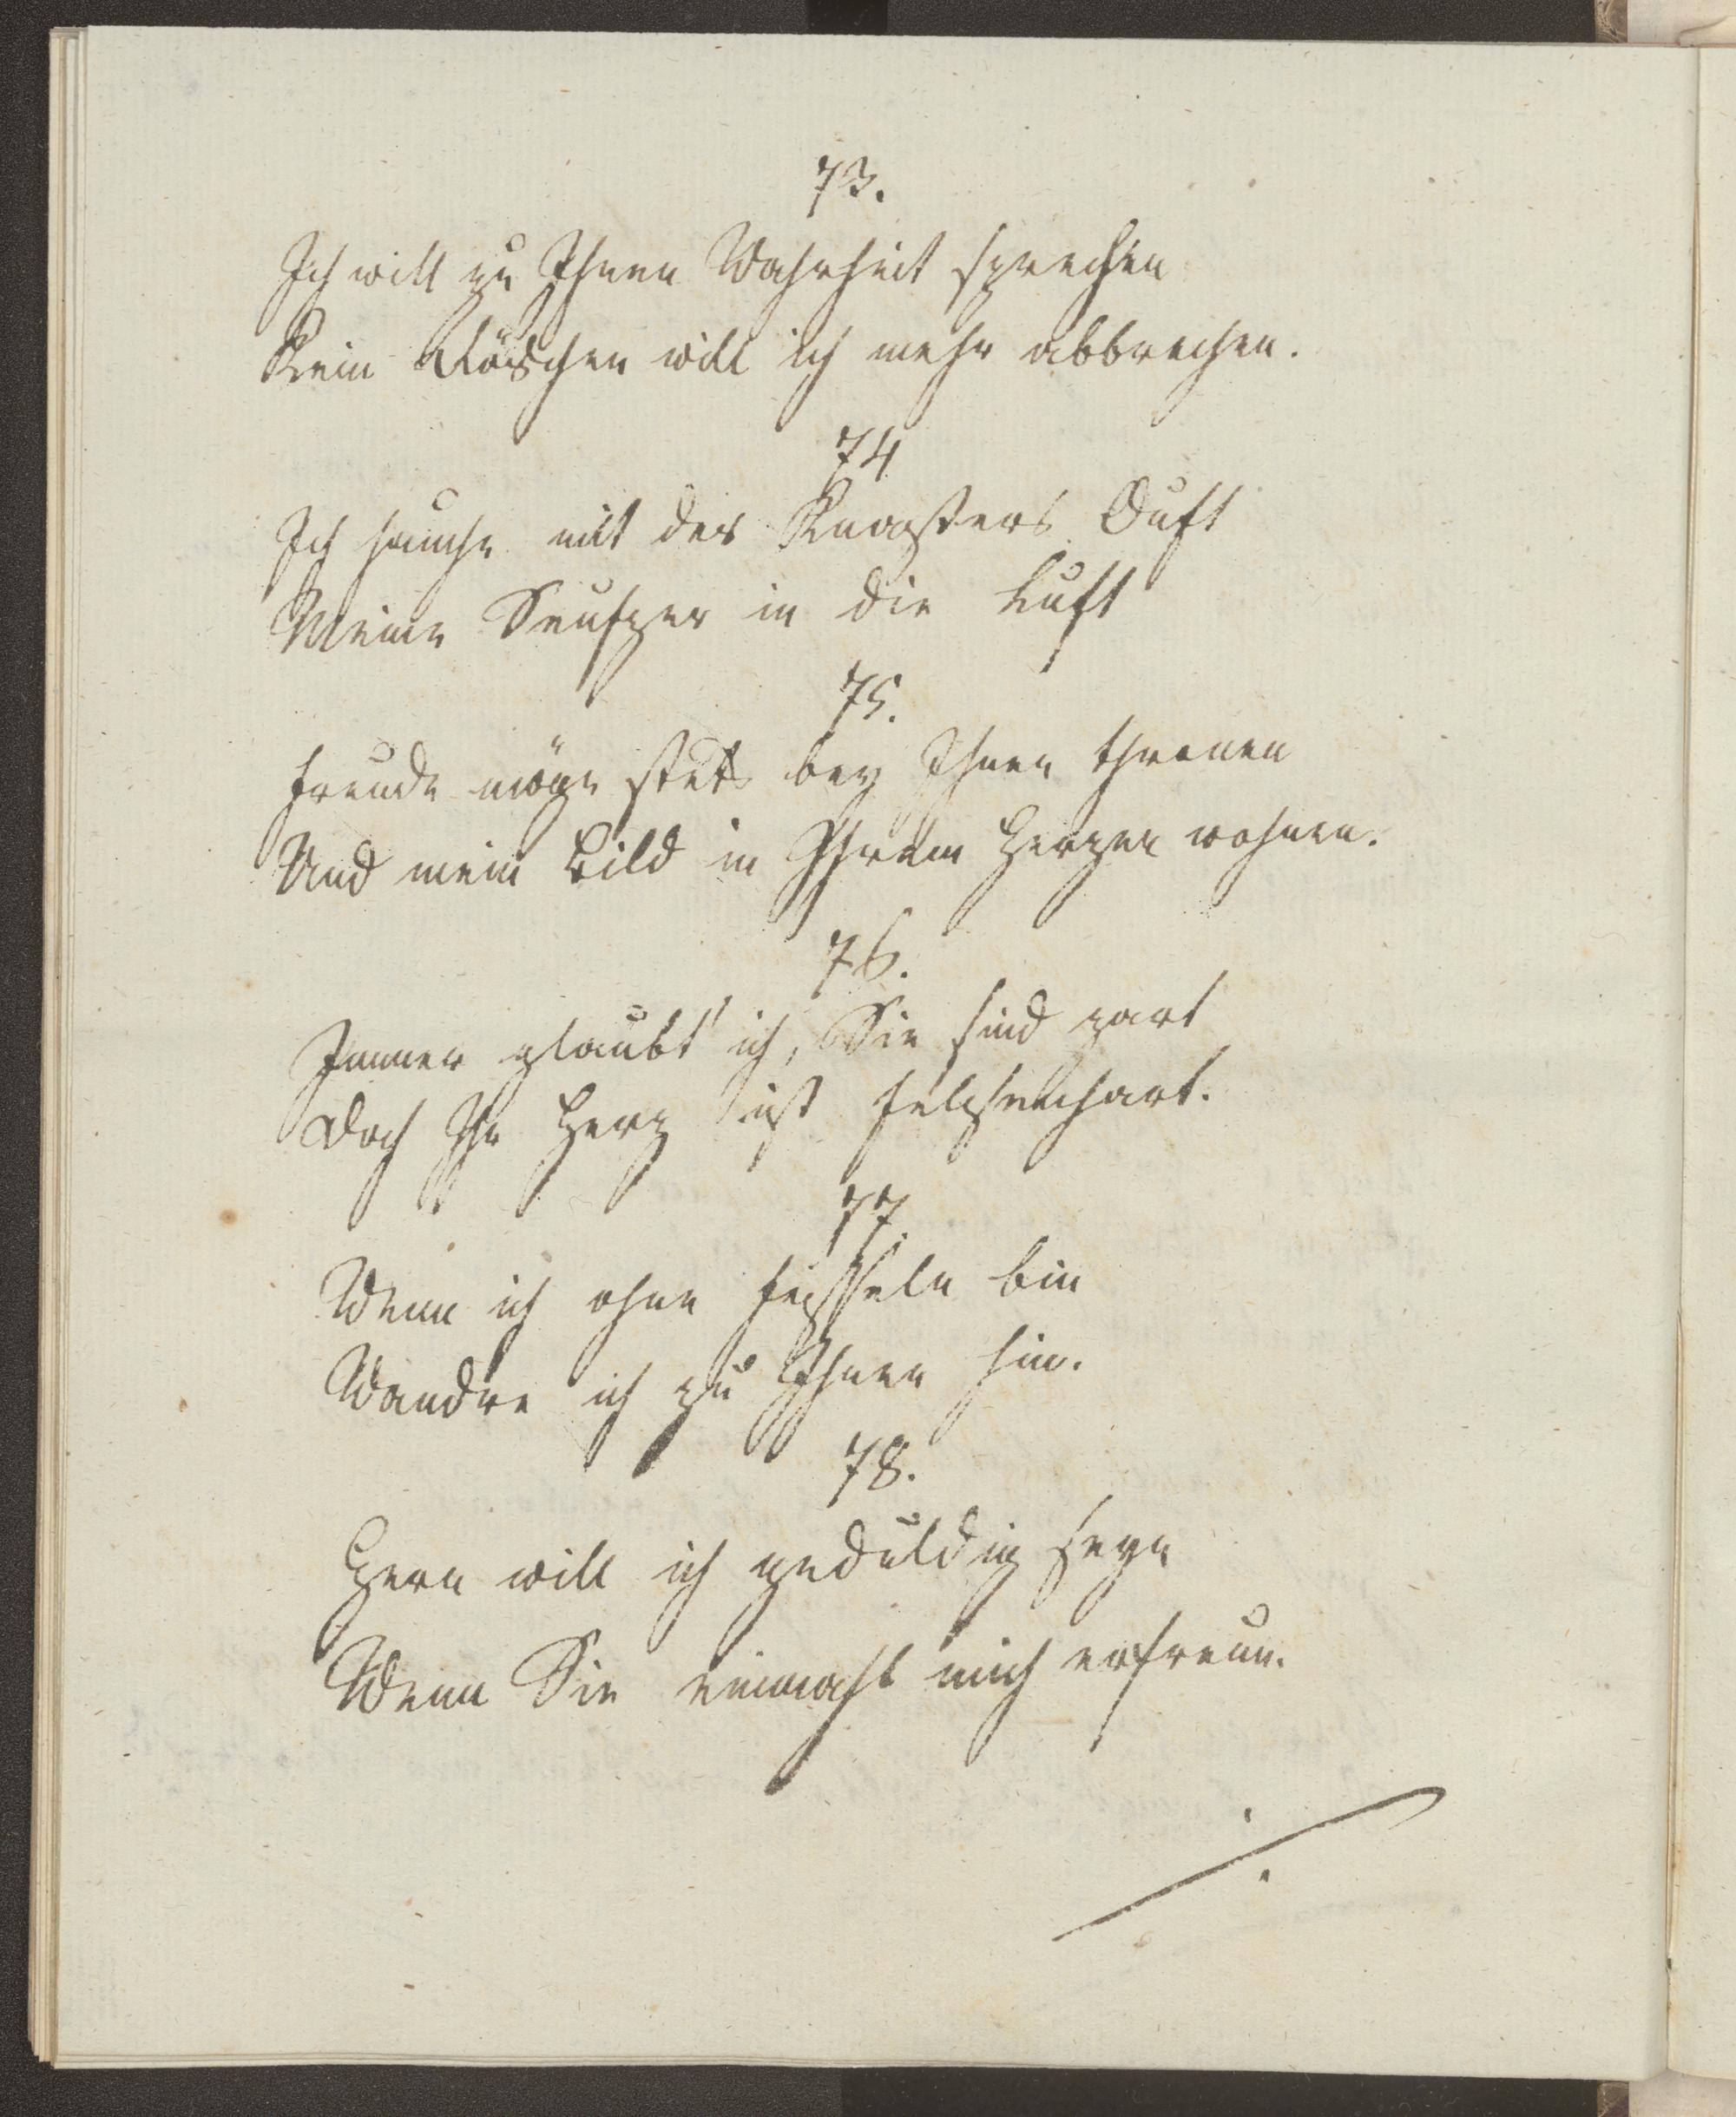 73.
Ich will zu Ihnen Wahrheit sprechen
Kein Röschen will ich mehr abbrechen.
74
Ich hauche mit des Knasters Duft
Meine Seufzer in die Luft
75.
Freude möge stets bey Ihnen thronen
Und mein Bild in Ihrem Herzen wohnen.
76.
Immer glaubt' ich, Sie sind zart
Doch Ihr Herz ist felsenhart.
77.
Wenn ich ohne Fesseln bin
Wandre ich zu Ihnen hin.
78.
Gern will ich geduldig seyn
Wenn Sie einmahl mich erfreun.